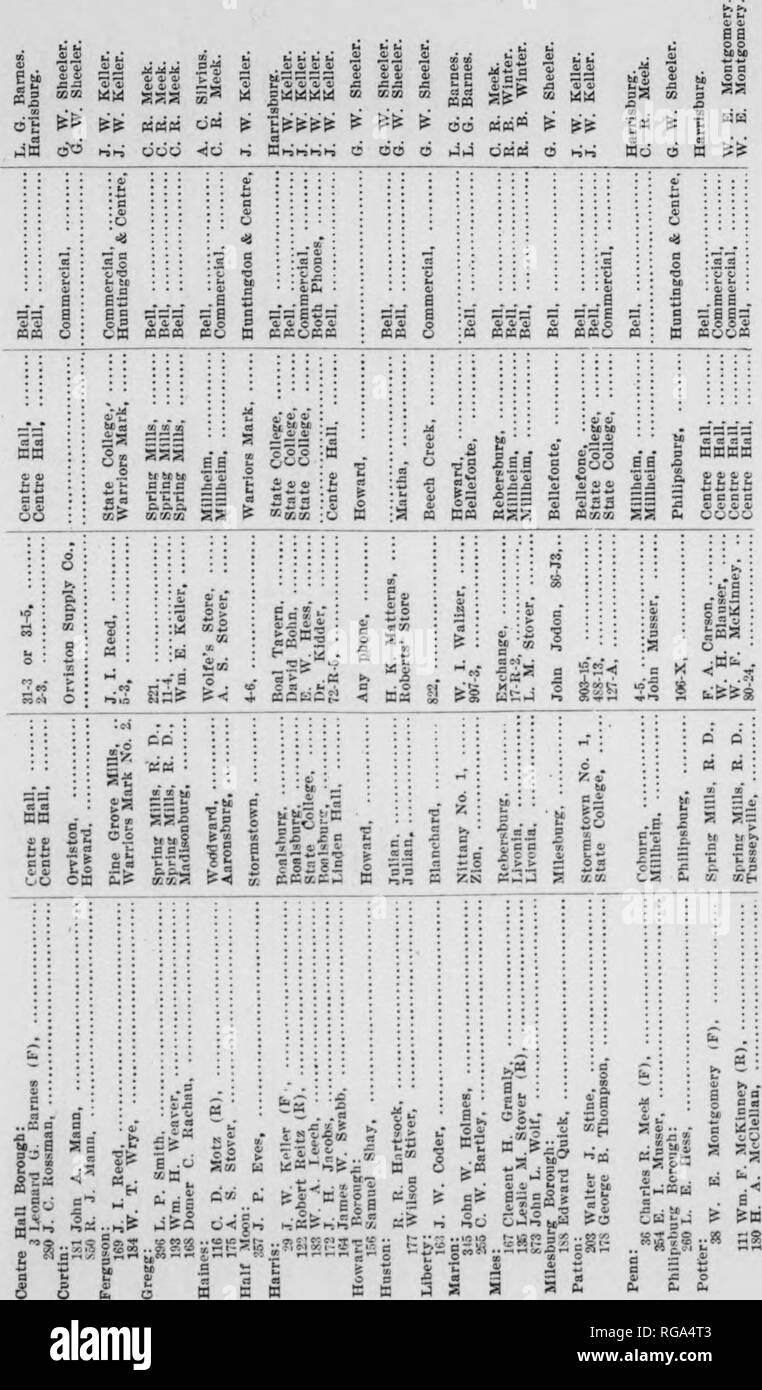 Centre Hall Borough:
3 Leonard G. Barnes (F), Centre Hall, 31-3 or 31-5, Centre Hall, Bell, L. G. Barnes.
280 J. C. Rossman, Centre Hall, 2-3, Centre Hall, Bell, Harrisburg.
Curtin:
181 John A. Mann, Orviston, Orviston Supply Co., Commercial, G. W. Sheeler.
850 R. J. Mann, Howard, G. W. Sheeler.
Ferguson:
169 J. I. Reed, Pine Grove Mills, J. I. Reed, State College, Commercial, J. W. Keller.
184 W. T. Wrye, Warriors Mark No. 2, 5-3, Warriors Mark, Huntingdon & Centre, J. W. Keller.
Gregg:
396 L. P. Smith, Spring Mills, R. D., 221, Spring Mills, Bell, C. R. Meek.
193 Wm. H. Weaver, Spring Mills, R. D., 11-4, Spring Mills, Bell, C. R. Meek.
168 Domer C. Rachau, Madisonburg, Wm. E. Keller, Spring Mills, Bell, C. R. Meek.
Haines:
116 C. D. Motz (R), Woodward, Wolfe's Store, Millheim, Bell, A. C. Silvius.
175 A. S. Stover, Aaronsburg, A. S. Stover, Millheim, Commercial, C. R. Meek.
Half Moon:
357 J. P. Eves, Stormstown, 4-6, Warriors Mark, Huntingdon & Centre, J. W. Keller.
Harris:
29 J. W. Keller (F), Boalsburg, Boal Tavern, State College, Bell, Harrisburg.
122 Robert Reitz (R), Boalsburg, David Bohn, State College, Bell, J. W. Keller.
183 W. A. Leech, State College, E. W. Hess, State College, Commercial, J. W. Keller.
172 J. H. Jacobs, Boalsburg, Dr. Kidder, Both Phones, J. W. Keller.
164 James W. Swabb, Linden Hall, 72-R-5, Centre Hall, Bell, J. W. Keller.
Howard Borough:
156 Samuel Shay, Howard, Any phone, Howard, G. W. Sheeler.
Huston:
R. R. Hartsock, Julian, H. K. Matterns, Bell, G. W. Sheeler.
177 Wilson Stiver, Julian, Roberts' Store Martha, Bell, G. W. Sheeler.
Liberty:
163 J. W. Coder, Blanchard, 822, Beech Creek, Commercial, G. W. Sheeler.
Marion:
345 John W. Holmes, Nittany No. 1, W. I. Walizer, Howard, L. G. Barnes.
265 C. W. Bartley, Zion, 907-3, Bellefonte, Bell, L. G. Barnes.
Miles:
167 Clement H. Gramly, Rebersburg, Exchange, Rebersburg, Bell, C. R. Meek.
135 Leslie M. Stover (R), Livonia, 17-R-2, Millheim, Bell, R. B. Winter.
873 John L. Wolf, Livonia, L. M. Stover, Millheim, Bell, R. B. Winter.
Milesburg Borough:
188 Edward Quick, Milesburg, John Jodon, 86-J3, Bellefonte, Bell, G. W. Sheeler.
Patton:
203 Walter J. Stine, Stormstown No. 1, 903-15, Bellefone, Bell, J. W. Keller.
488-13, State College, Bell,
178 George B. Thompson, State College, 127-A, State College, Commercial, J. W. Keller.
Penn:
36 Charles R. Meek (F), Coburn, 4-5, Millheim, Bell, Harrisburg.
354 E. I. Musser, Millheim, John Musser, Millheim, C. R. Meek.
Philipsburg Borough:
260 L. E. Hess, Philipsburg, 106-X, Philipsburg, Huntingdon & Centre, G. W. Sheeler.
Potter:
38 W. E. Montgomery (F), Spring Mills, R. D., F. A. Carson, Centre Hall, Bell, Harrisburg.
W. H. Blauser, Centre Hall, Commercial,
111 Wm. F. McKinney (R), Spring Mills, R. D., W. F. McKinney, Centre Hall, Commercial, W. E. Montgomery.
180 H. A. McClellan, Tusseyville, 80-24, Centre Hall, Bell, W. E. Montgomery.
alamy
Image ID: RGA4T3
www.alamy.com